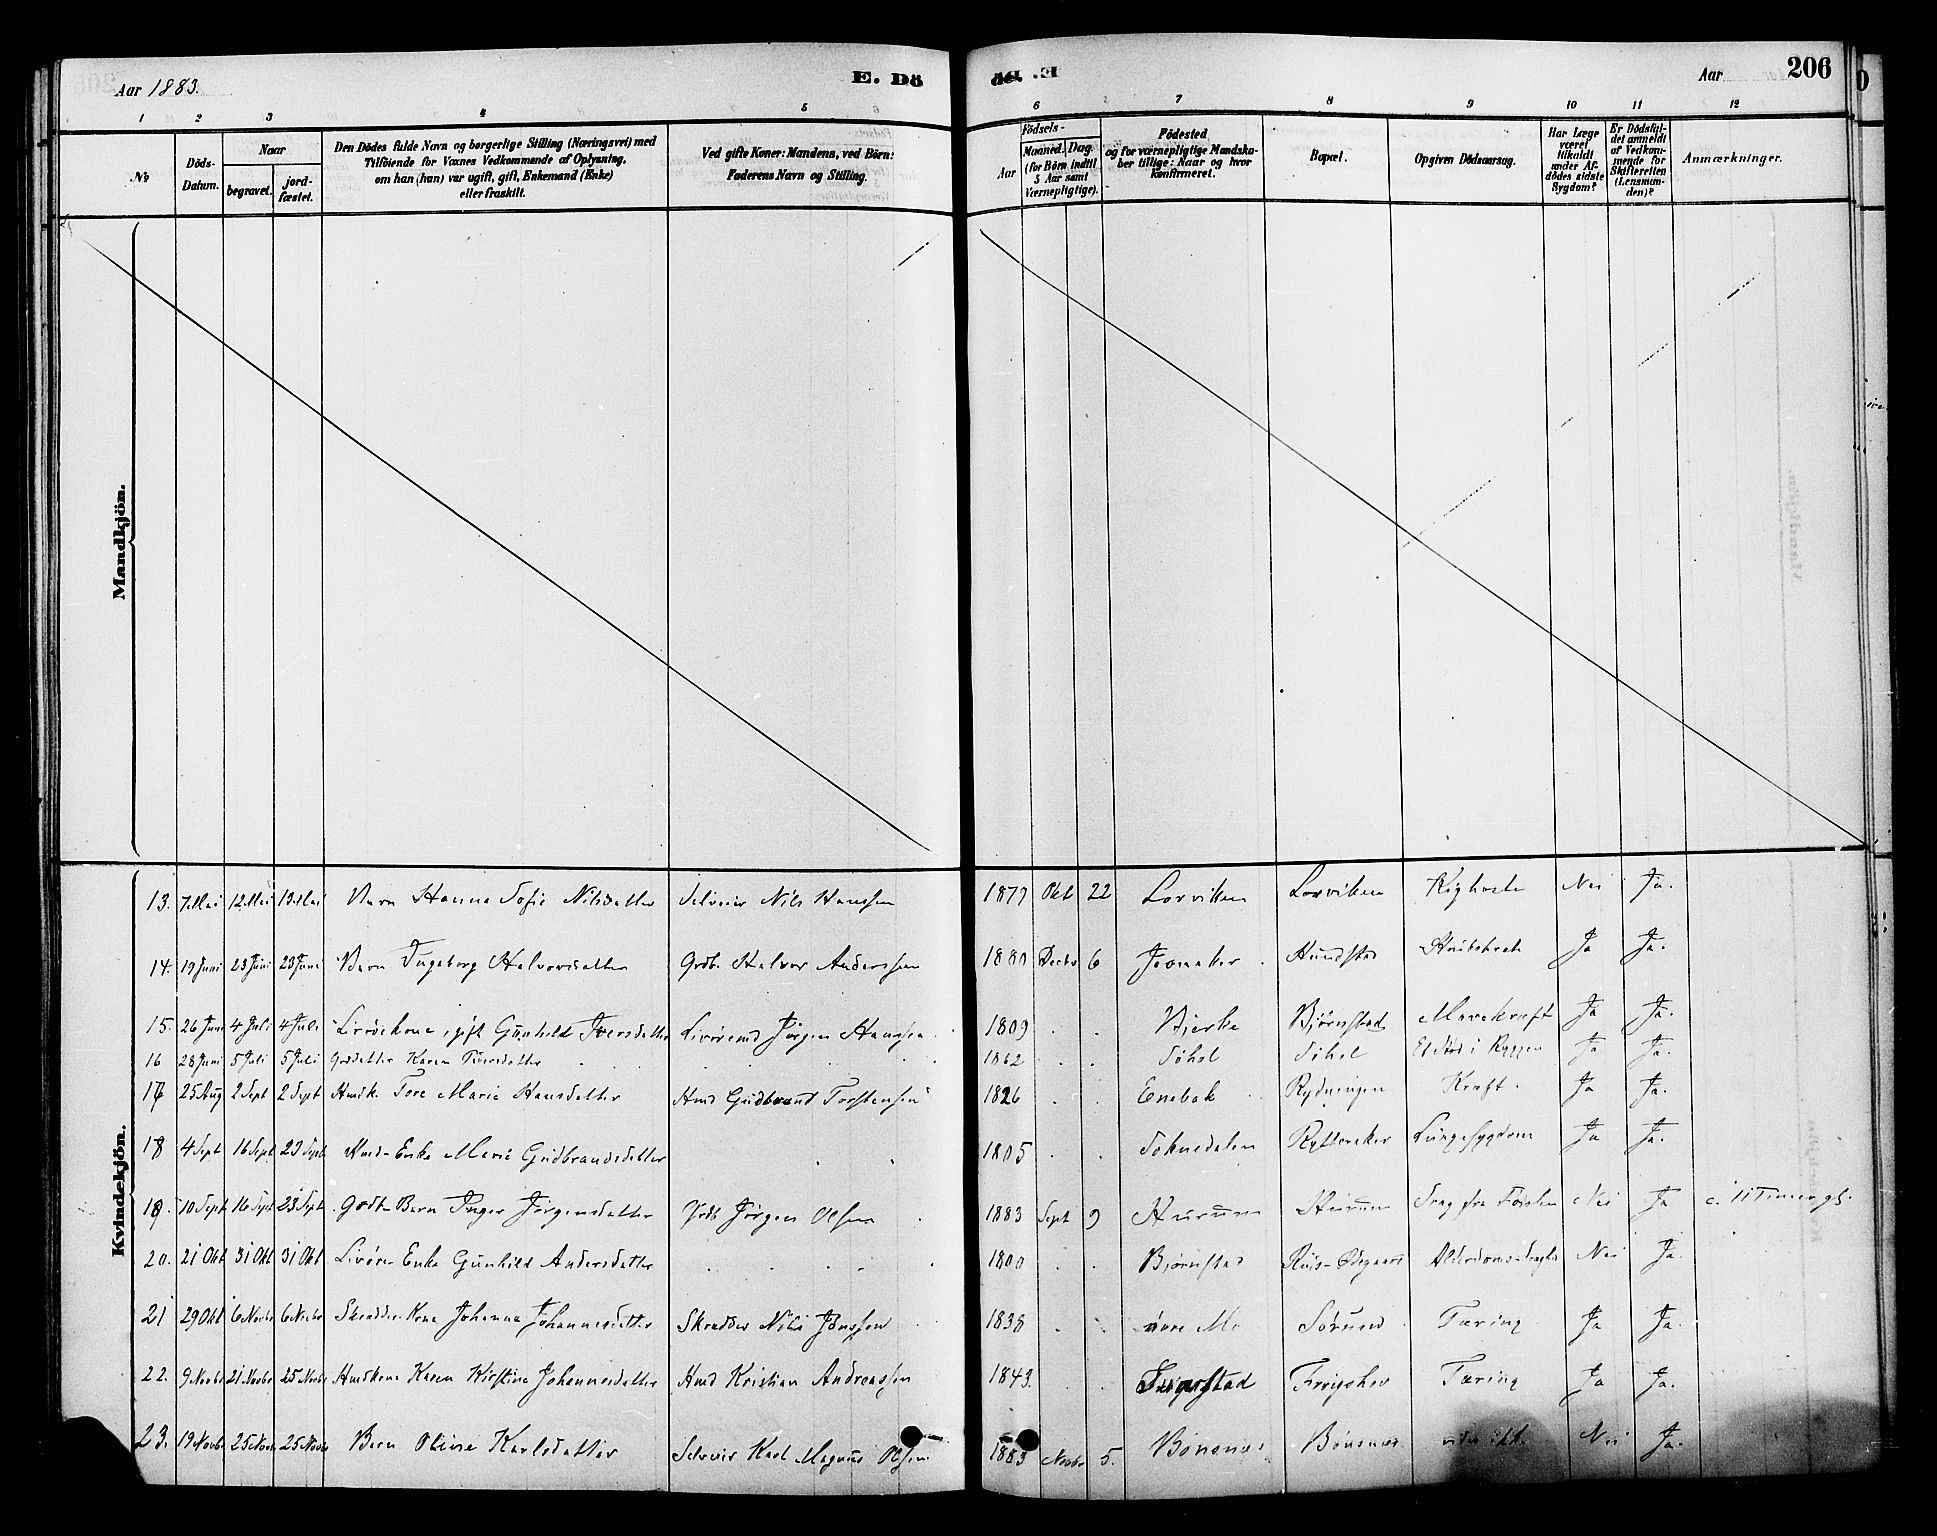 Aar 1883.
E. Dö
E. Dö.
Aar
206
1 2 3 4 5 6 7 8 9 10 11 12
No
Döds-Datum.
Naar
begravet.
jord-fæstet.
Den Dödes fulde Navn og borgerlige Stilling (Næringsvei) med
Tilföiende for Voxnes Vedkommende af Oplysning,
om han (hun) var ugift, gift, Enkemand (Enke)
eller fraskilt.
Ved gifte Koner: Mandens, ved Börn:
Faderens Navn og Stilling.
Födsels-
Aar
Maaned. Dag.
(for Börn indtil
5 Aar samt
Værnepligtige).
Födested
og for værnepligtige Mandska-
ber tillige: Naar og hvor
konfirmeret.
Bopæl.
Opgiven Dödsaarsag.
Har Læge
været
tilkaldt
under Af-
dödes sidste
Sygdom?
Er Dödsfal-
det anmeldt
af Vedkom-
mende for
Skifteretten
(Lensman-
den)?
Anmærkninger.
Mandkjön.
Kvindekjön.
13. 7 Mai 12 Mai 13 Mai Barn Hanna Sofie Nilsdatter Selveier Nils Hanssen 1879 Okt 22 Lorviken Lorviken Kighoste Nei Ja.
14. 19 Juni 23 Juni 23 Juni Barn Ingeborg Halvorsdatter Grdb. Halvor Anderssen 1880 Decbr 6 Hundstad Ja Ja.
15. 26 Juni 4 Juli 4 Juli gift Gunhild Iversdatter Jørgen Hanssen 1809 Bjerke Bjørnstad Ja Ja.
16 28 Juni 5 Juli 5 Juli Grddatter Karen 1862 Søhol Søhol i Ryggen Ja Ja.
17 25 Aug 2 Sept 2 Sept Hmdk. Tore Marie Hansdatter Hmd Gudbrand Torstensen 1826 Enebak Rydningen Kræft. Ja Ja.
18 4 Sept 16 Sept 23 Sept Hmd-Enke Marie Gudbrandsdatter 1805 Soknedalen Rytteraker Lungesygdom Ja Ja.
19. 10 Sept 16 Sept 23 Sept Grdb Barn Inger Jørgensdatter Grdb Jørgen Olsen 1883 Sept 9 Hurum Hurum Svag fra Fødselen Nei Ja c. 11 Timer gl.
20. 21 Okt 31 Okt 31 Okt Enke Gunhild Andersdatter 1800 Bjørnstad Nei Ja.
21 29 Okt 6 Novbr 6 Novbr Skrædder-Kone Johanne Johannesdatter Skrædder Nils Jonssen 1838 øvre Mo Sørum Tæring Ja Ja.
22. 9 Novbr 21 Novbr 25 Novbr Hmdkone Karen Kirstine Johannesdatter Hmd Kristian Andreassen 1843. Frøyshov Tæring Ja Ja.
23. 19 Novbr 25 Novbr 25 Novbr Barn Oline Karlsdatter Selveier Karl Magnus Olsen 1883 Novbr 5. Bønsnes Bønsnes vides ikke. Nei Ja.